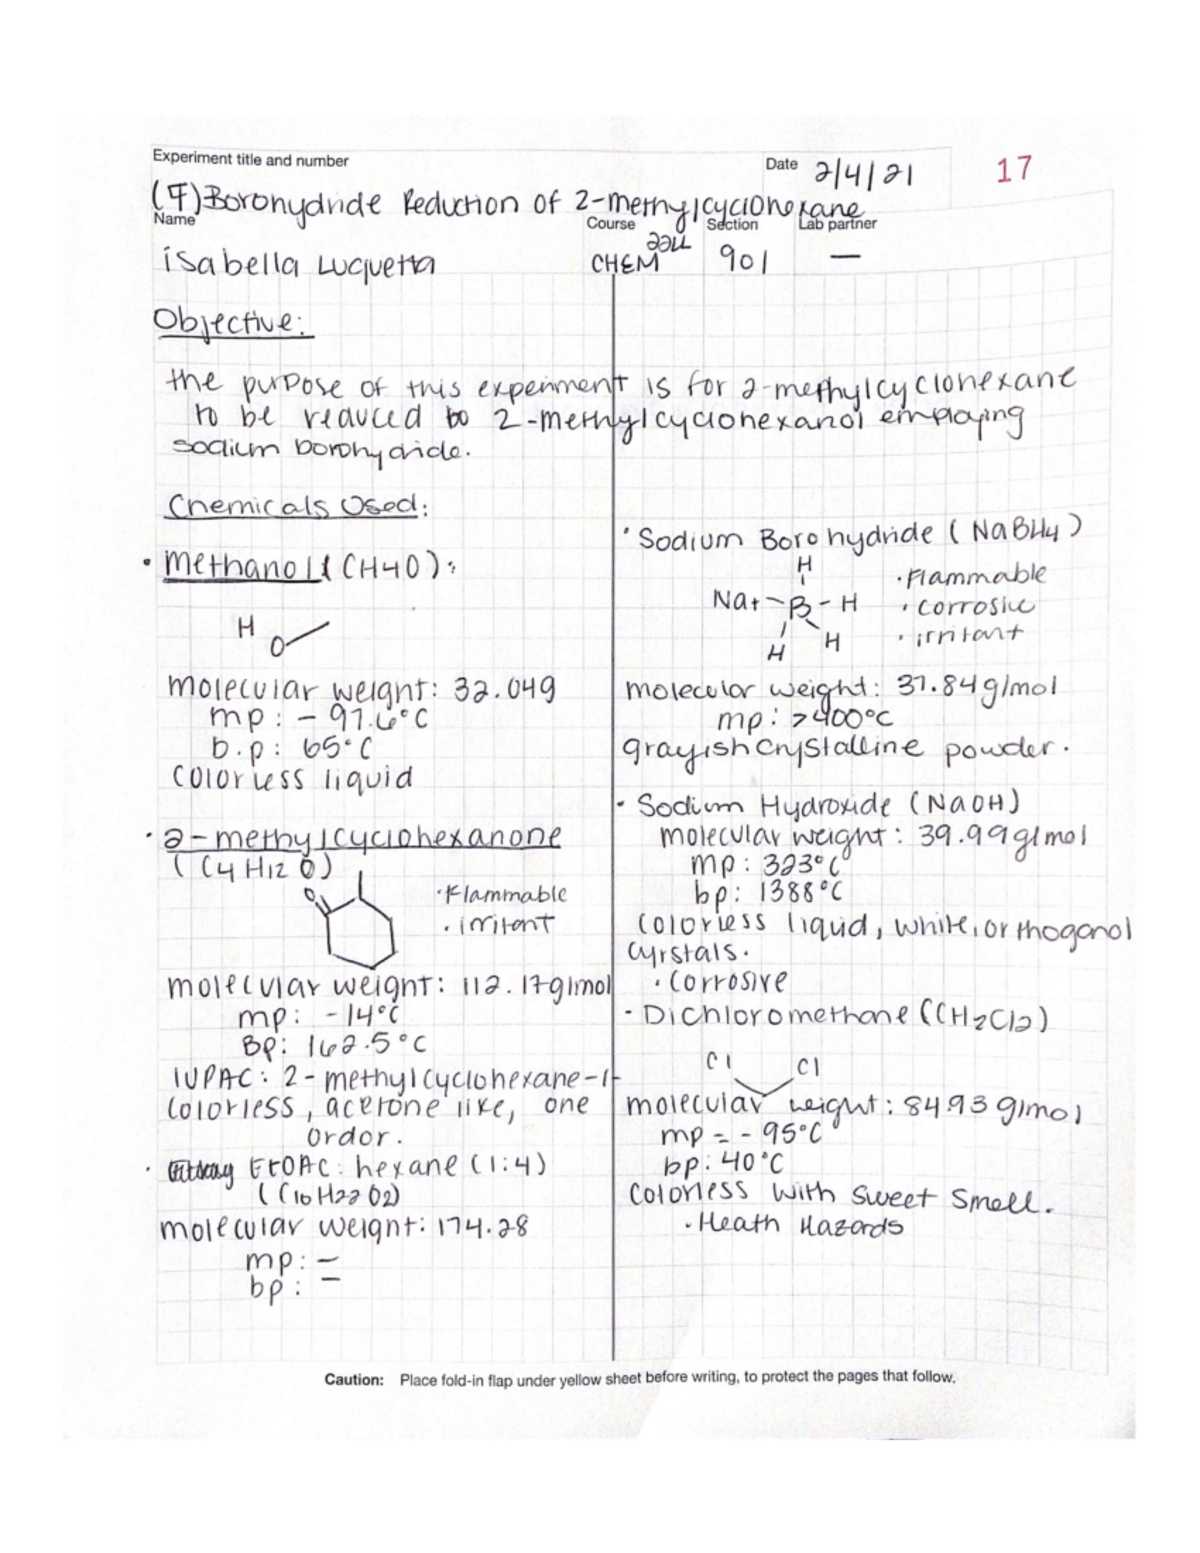 Experiment title and number
Date 2/4/21
17
(7) Borohydride Reduction of 2-methylcyclohexane
Name
Course
Section
Lab partner
isabella Luquetta
CHEM
901
—
Objective:
the purpose of this experiment is for 2-methylcyclohexane
to be reduced to 2-methylcyclohexanol employing
sodium borohydride.
Chemicals Used:
• Methanol (CH4O):
H
O
molecular weight: 32.049
mp: -97.6°C
b.p: 65°C
colorless liquid
• 2-methylcyclohexanone
(C4H12O)
O
• Flammable
• irritant
molecular weight: 112.17g/mol
mp: -14°C
Bp: 162.5°C
IUPAC: 2-methylcyclohexane-1-
colorless, acetone like, one
ordor.
• EtOAC: hexane (1:4)
(C10H22O2)
molecular weight: 174.28
mp: —
bp: —
• Sodium Borohydride (NaBH4)
H
Na+ - B - H
H H
• Flammable
• corrosive
• irritant
molecular weight: 37.84g/mol
mp: >400°C
grayish crystalline powder.
• Sodium Hydroxide (NaOH)
molecular weight: 39.99g/mol
mp: 323°C
bp: 1388°C
colorless liqud, white, orthogonol
cyrstals.
• Corrosive
• Dichloromethane (CH2Cl2)
Cl Cl
molecular weight: 84.93 g/mol
mp = -95°C
bp: 40°C
Colorless with sweet smell.
• Heath Hazards
Caution: Place fold-in flap under yellow sheet before writing, to protect the pages that follow.